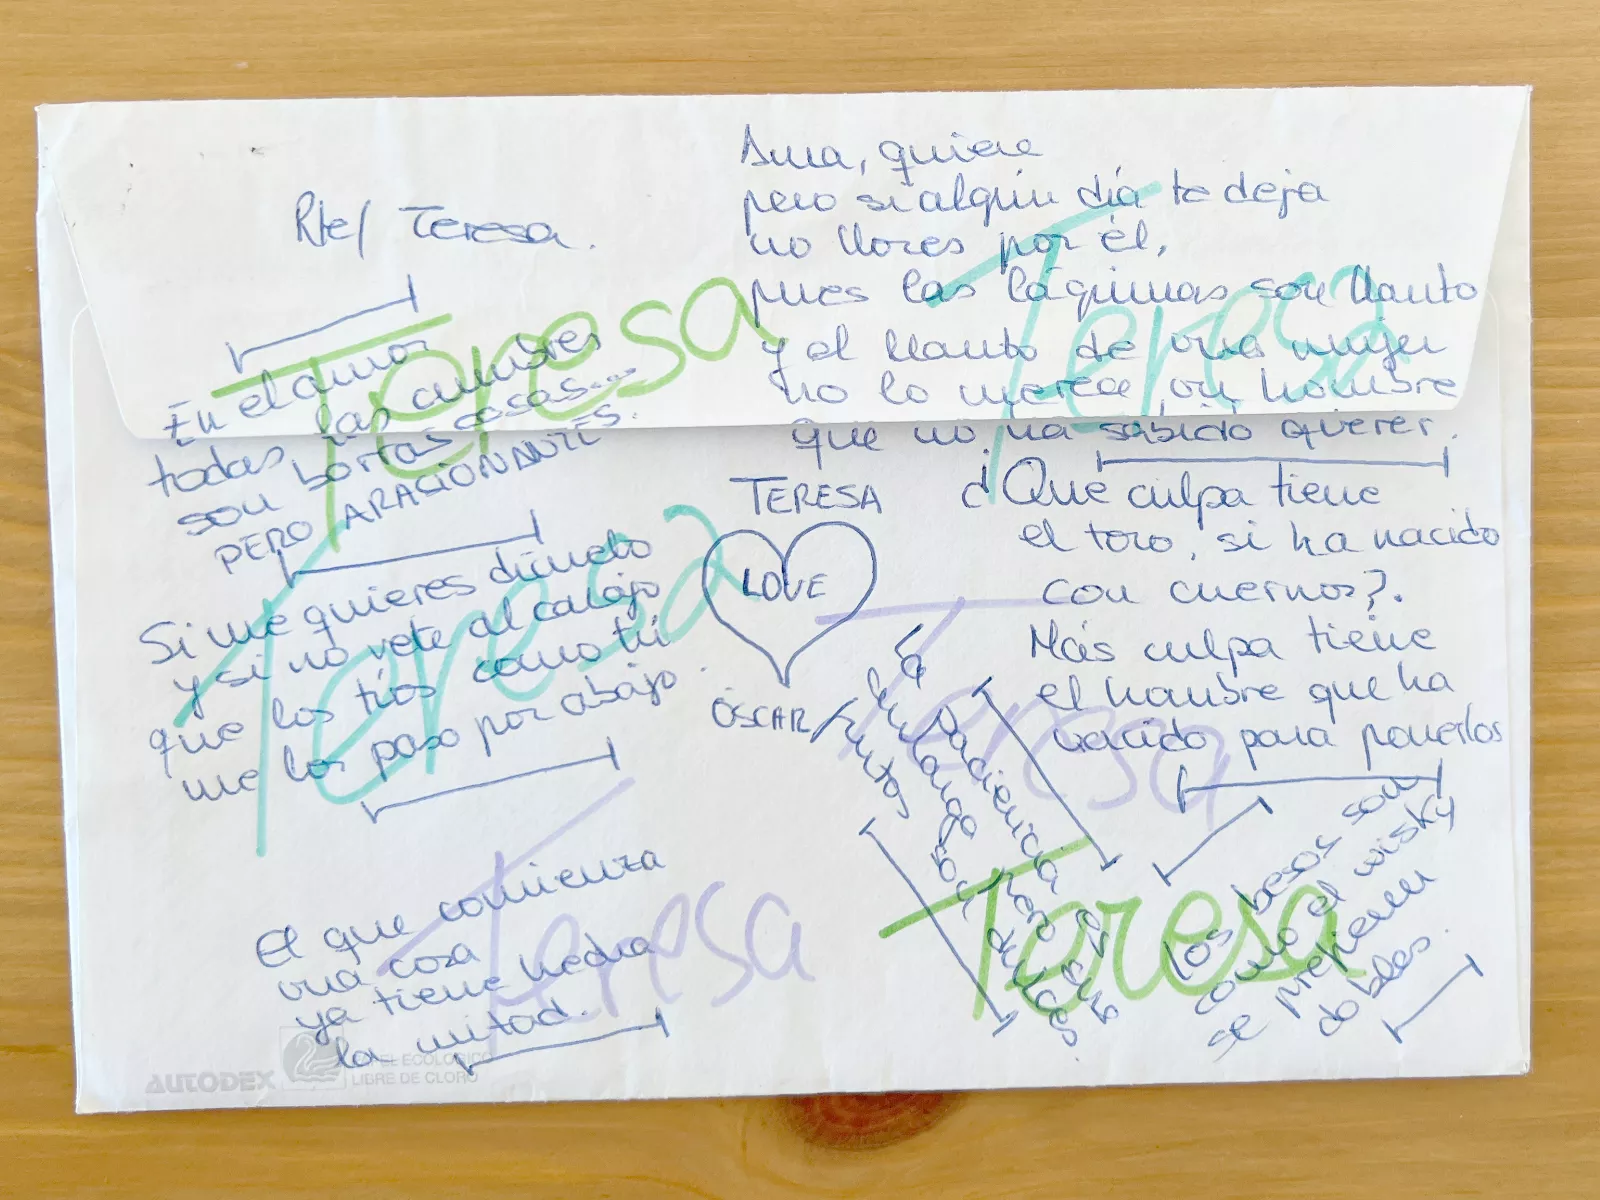 Rte/ Teresa.
Ama, quiere
pero si algún día te deja
no llores por él,
pues las lágrimas son llanto
y el llanto de una mujer
no lo merece un hombre
que no ha sabido querer.
En el amor
todas las cumbres
son borrascosas...
PERO APASIONANTES.
Si me quieres dímelo
y si no vete al carajo
que los tíos como tú
me los paso por abajo.
El que comienza
una cosa
ya tiene hecha
la mitad.
TERESA
LOVE
ÓSCAR
¿Que culpa tiene
el toro, si ha nacido
con cuernos?.
Más culpa tiene
el hombre que ha
nacido para ponerlos
La paciencia es
amarga pero sus
frutos son dulces.
Los besos son
como el wisky
se prefieren
dobles.
Teresa
Teresa
Teresa
Teresa
Teresa
Teresa
AUTODEX
PAPEL ECOLÓGICO
LIBRE DE CLORO